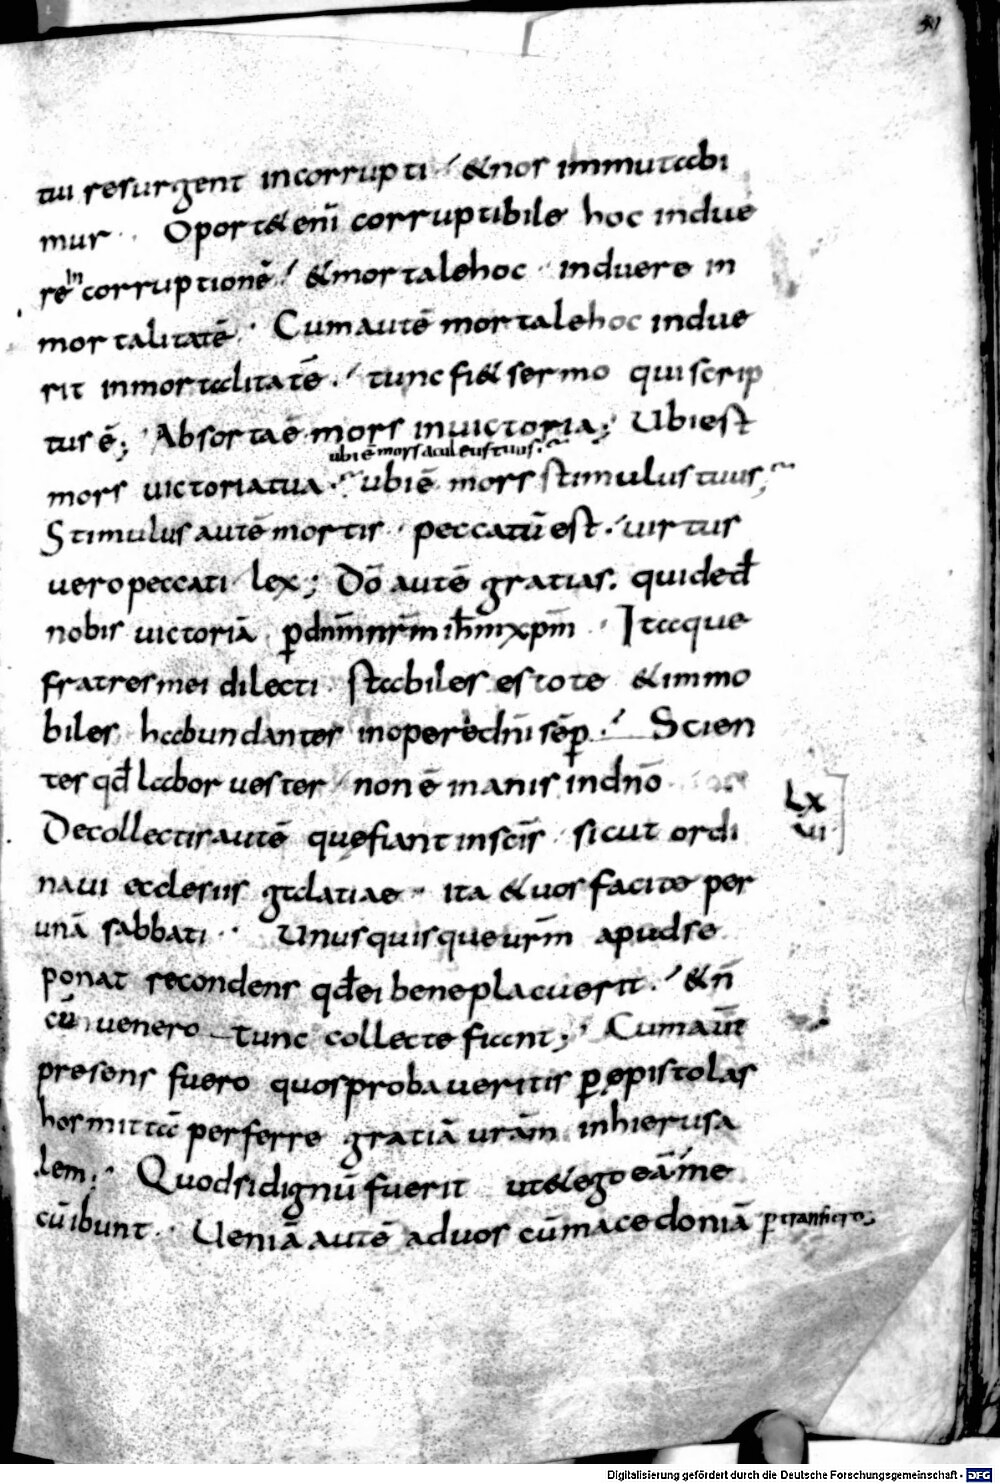 51
tui resurgent incorrupti · & nos immutabi
mur · Oport& eni̅ corruptibile hoc indue
re in corruptione̅ · & mortale hoc induere in
mortalitate̅ · Cum aute̅ mortale hoc indue
rit inmortalitate̅ · tunc fi& sermo qui scrip
tus e̅; Absorta e̅ mors in uictoria; Ubi est
ubi e̅ mors aculeus tuus
mors uictoria tua · ubi e̅ mors stimulus tuus;
Stimulus aute̅ mortis · peccatu̅ est · uirtus
uero peccati lex; Do̅ aute̅ gratias · qui ded̅
nobis uictoria̅ ꝑ dnm̅ nrm̅ ihm̅ xpm̅ · Itaque
fratres mei dilecti stabiles estote & immo
biles habundantes in opere dni̅ se̅ꝑ · Scien
tes qd̅ labor uester non e̅ inanis in dno̅
De collectis aute̅ que fiant in sci̅s · sicut ordi
Lx
ui
naui ecclesiis galatiae · ita & uos facite per
una̅ sabbati · Unusquisque urm̅ apud se
ponat recondens qd̅ ei bene placuerit · & n̅
cu̅ uenero tunc collecte fiant; Cum aut̅
presens fuero quos probaueritis ꝑ epistolas
hos mitta̅ perferre gratia̅ ura̅m in hierusa
lem; Quod si dignu̅ fuerit ut & ego ea̅ me
cu̅ ibunt · Uenia̅ aute̅ ad uos cu̅ macedonia̅ ꝑtransiero;
Digitalisierung gefördert durch die Deutsche Forschungsgemeinschaft - DFG